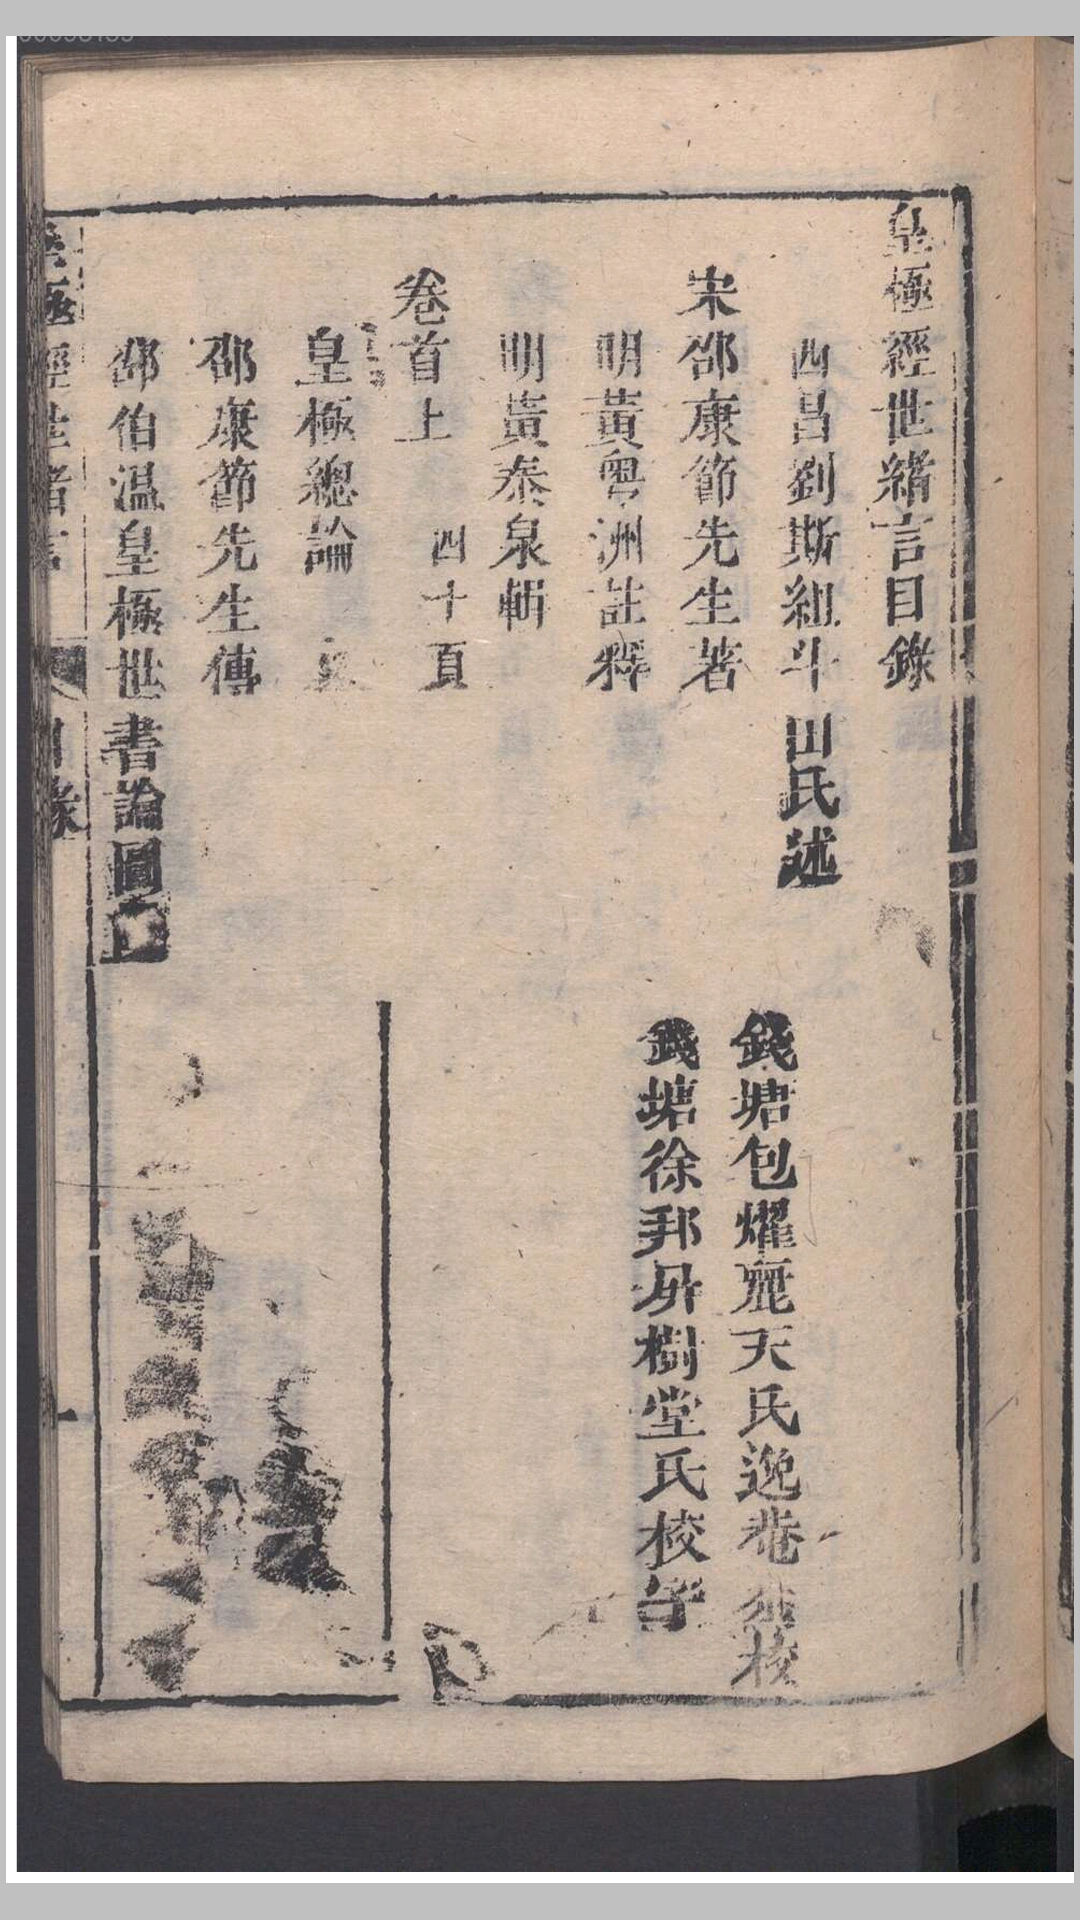 皇極經世緒言目錄
西昌劉斯組斗田氏述
宋邵康節先生著
錢塘包燿麗天氏逸菴叅校
明黃粤洲註釋
錢塘徐邦屏樹堂氏校
明黃泰泉輯
卷首上 四十頁
皇極總論
邵康節先生傳
邵伯温皇極世書論圖
皇極經世緒言
目錄
一